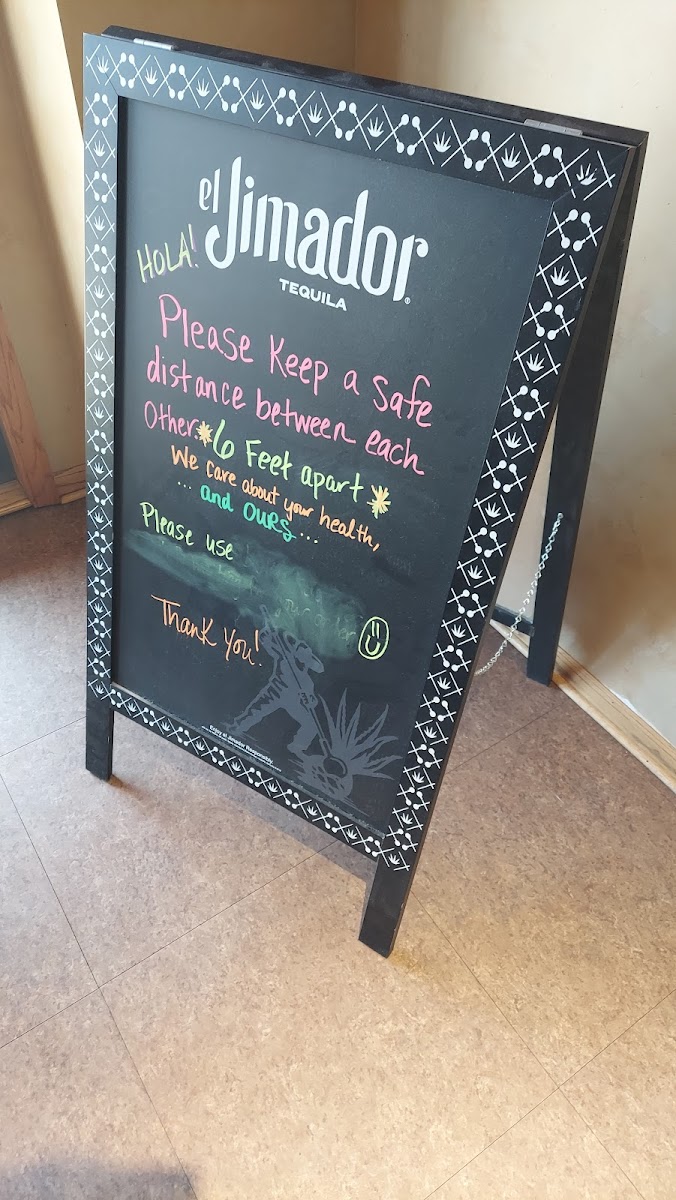 el Jimador
TEQUILA
HOLA!
Please Keep a Safe
distance between each
Other. *6 Feet apart*
We care about your health,
... and OURS ...
Please use
Thank You!
Enjoy el Jimador Responsibly